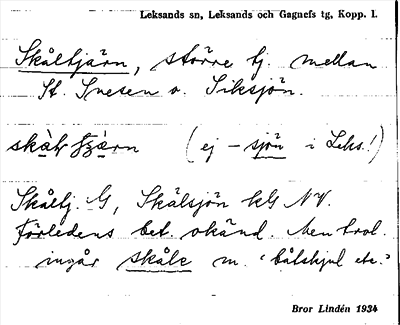 Leksands sn, Leksands och Gagnefs tg, Kopp. l.
Skåltjärn, större tj. mellan
St. Snesen o. Siksjön.
(ej – sjön i Leks.!)
Skåltj. G, Skålsjön kbl NV.
Förledens bet. okänd. Men trol.
ingår skåle m. 'båtskjul etc.'
Bror Lindén 1934